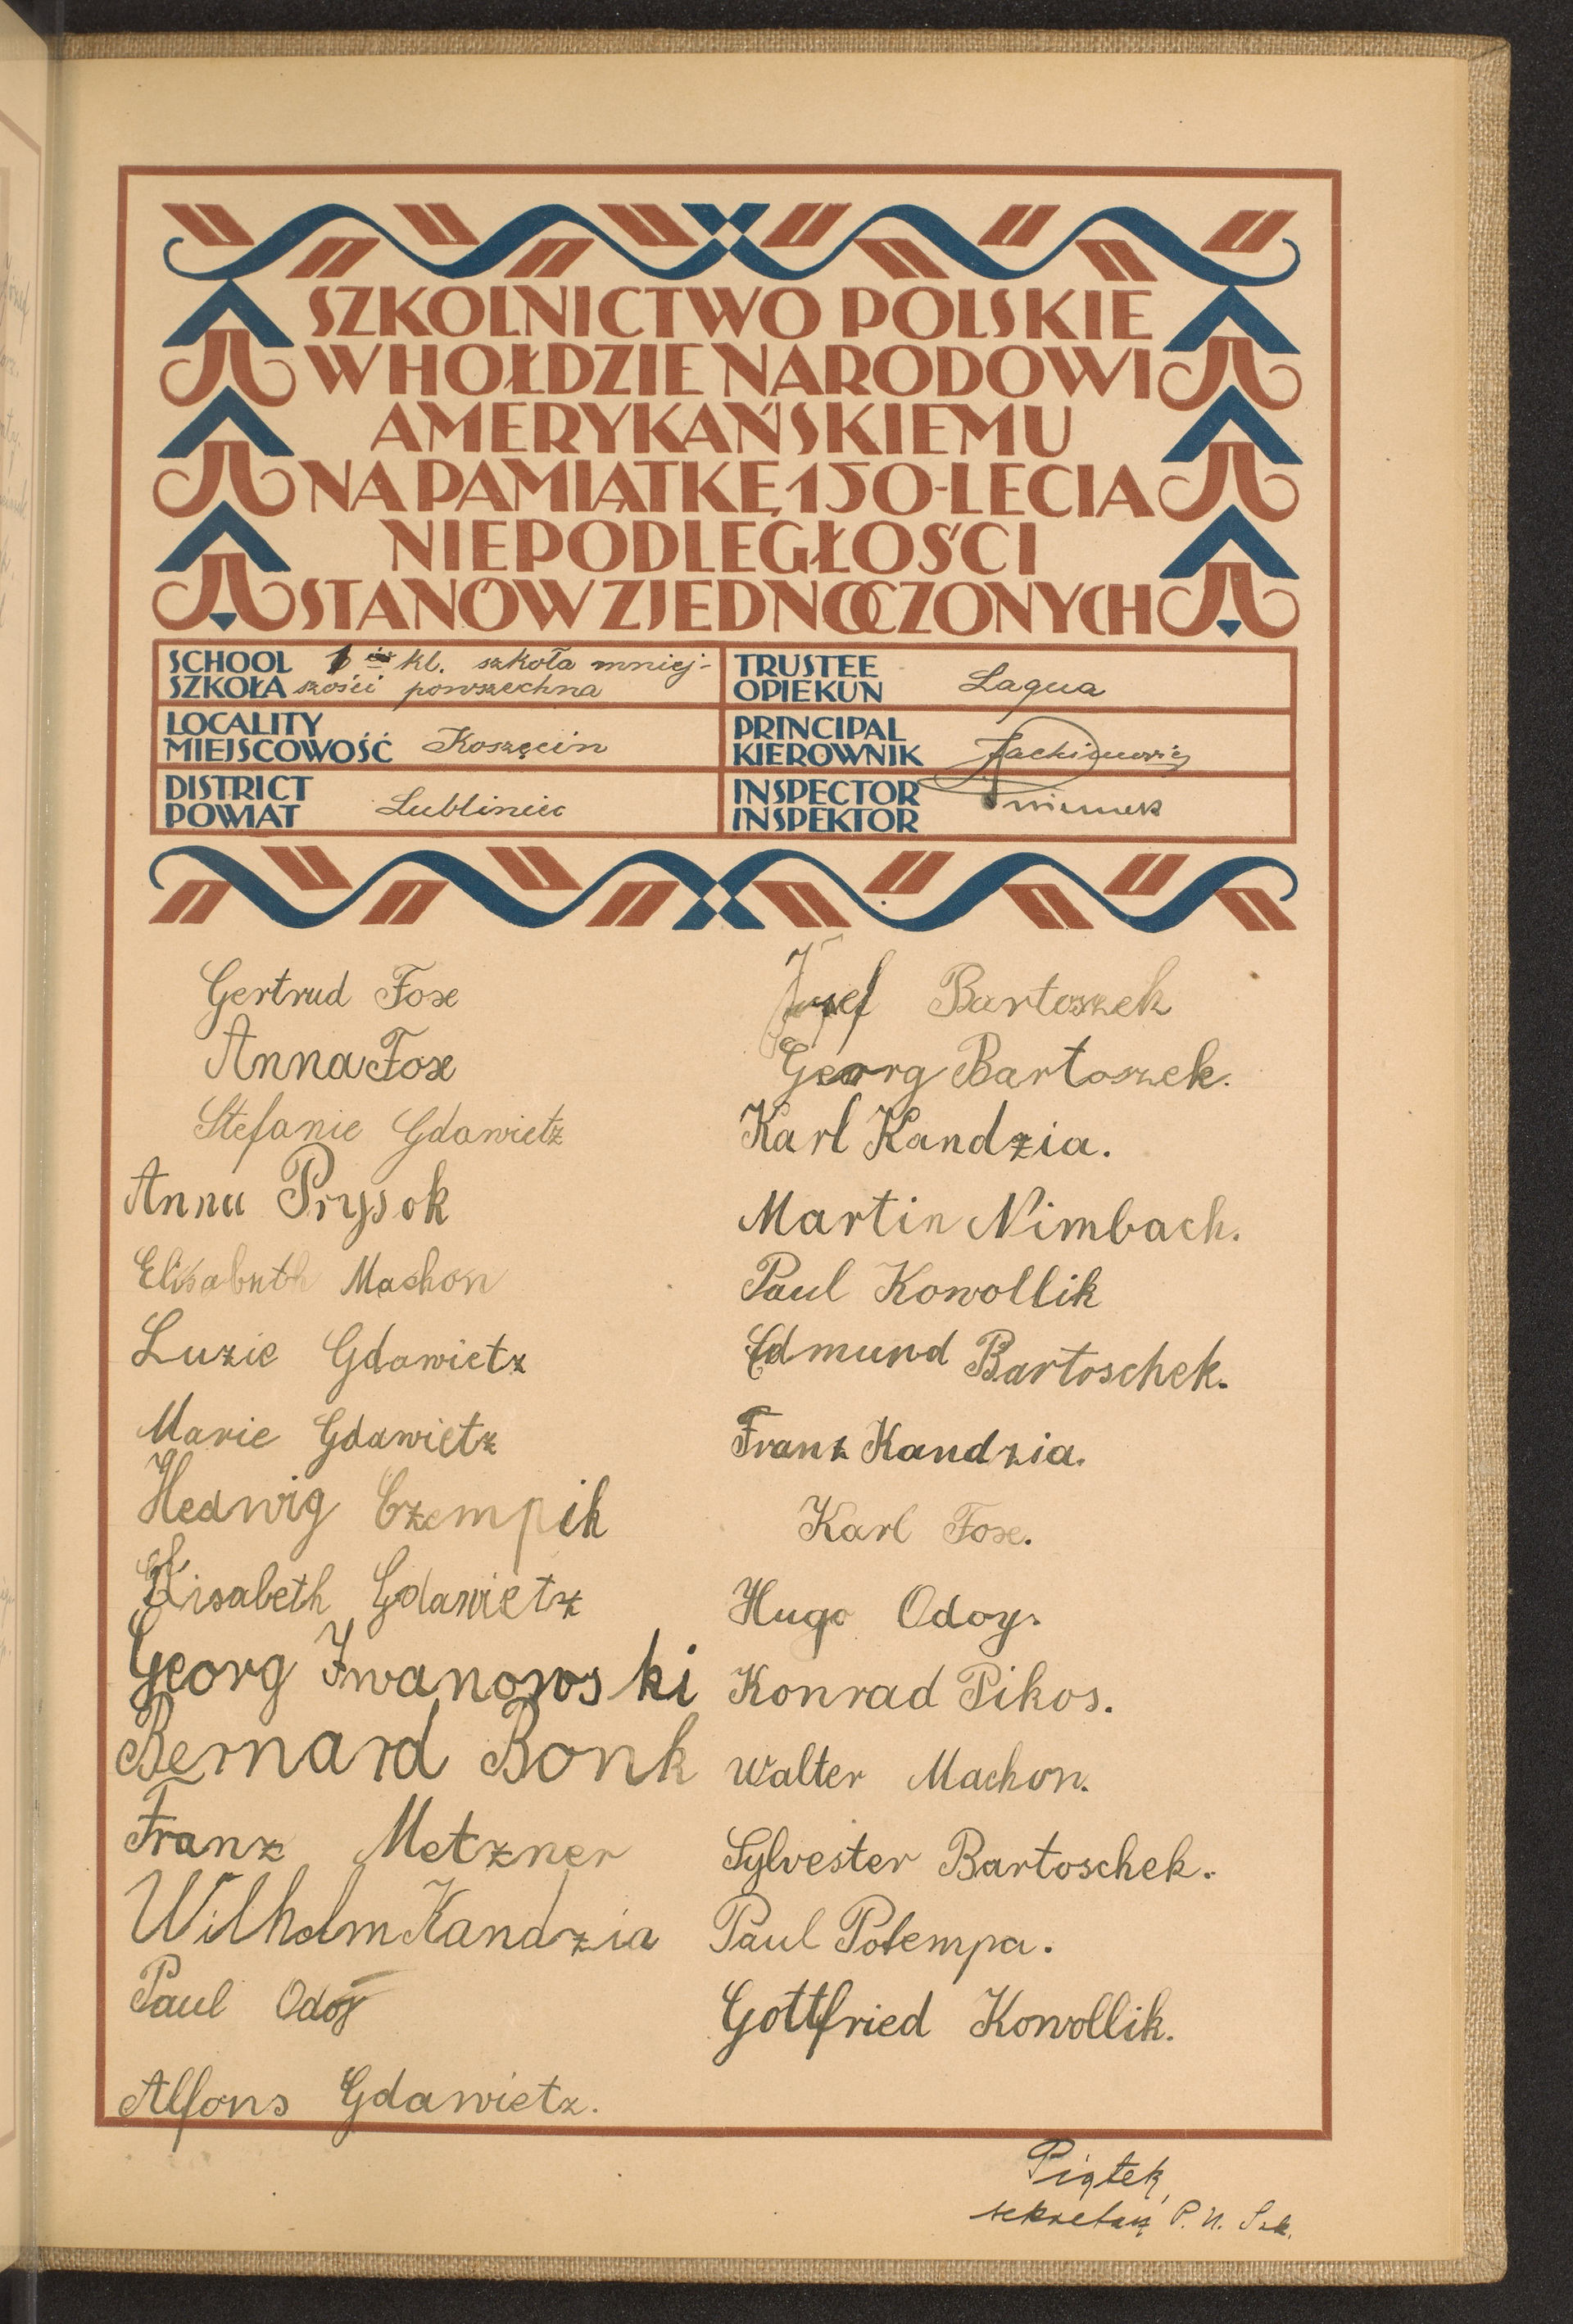 SZKOLNICTWO POLSKIE
W HOŁDZIE NARODOWI
AMERYKAŃSKIEMU
NA PAMIĄTKĘ 150-LECIA
NIEPODLEGŁOŚCI
STANÓW ZJEDNOCZONYCH
SCHOOL
SZKOŁA
kl. szkoła mniej-
szości powszechna
TRUSTEE
OPIEKUN
Lagua
LOCALITY
MIEJSCOWOŚĆ
Koszęcin
PRINCIPAL
KIEROWNIK
DISTRICT
POWIAT
Lubliniec
INSPECTOR
INSPEKTOR
Gertrud Fox
Anna Fox
Stefanie Gdawietz
Anna Prysok
Elisabeth Machon
Luzie Gdawietz
Marie Gdawietz
Hedwig Czempik
Elisabeth Gdawietz
Georg Iwanowski
Bernard Bonk
Franz Metzner
Wilhelm Kandzia
Paul Odoy
Alfons Gdawietz.
Josef Bartoszek
Georg Bartoszek.
Karl Kandzia.
Martin Nimbach.
Paul Kowollik
Edmund Bartoschek.
Franz Kandzia.
Karl Fox.
Hugo Odoy.
Konrad Pikos.
Walter Machon.
Sylvester Bartoschek.
Paul Potempa.
Gottfried Kowollik.
Piątek,
sekretarz P. U. Szk.